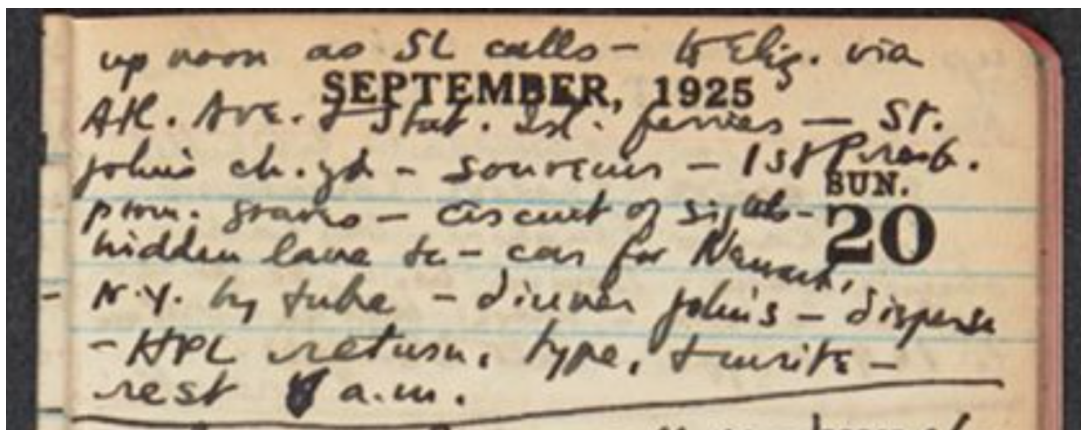 up noon as SL calls – to Eliz. via
SEPTEMBER, 1925
Atl. Ave. & Stat. Isl. ferries — St.
John's ch. yd – souvenir – 1st Presb.
SUN.
20
prom. graves – circuit of sights –
hidden lane &c – car for Newark,
N.Y. by tube – dinner John's – disperse
– HPL return, type, & write –
rest a.m.